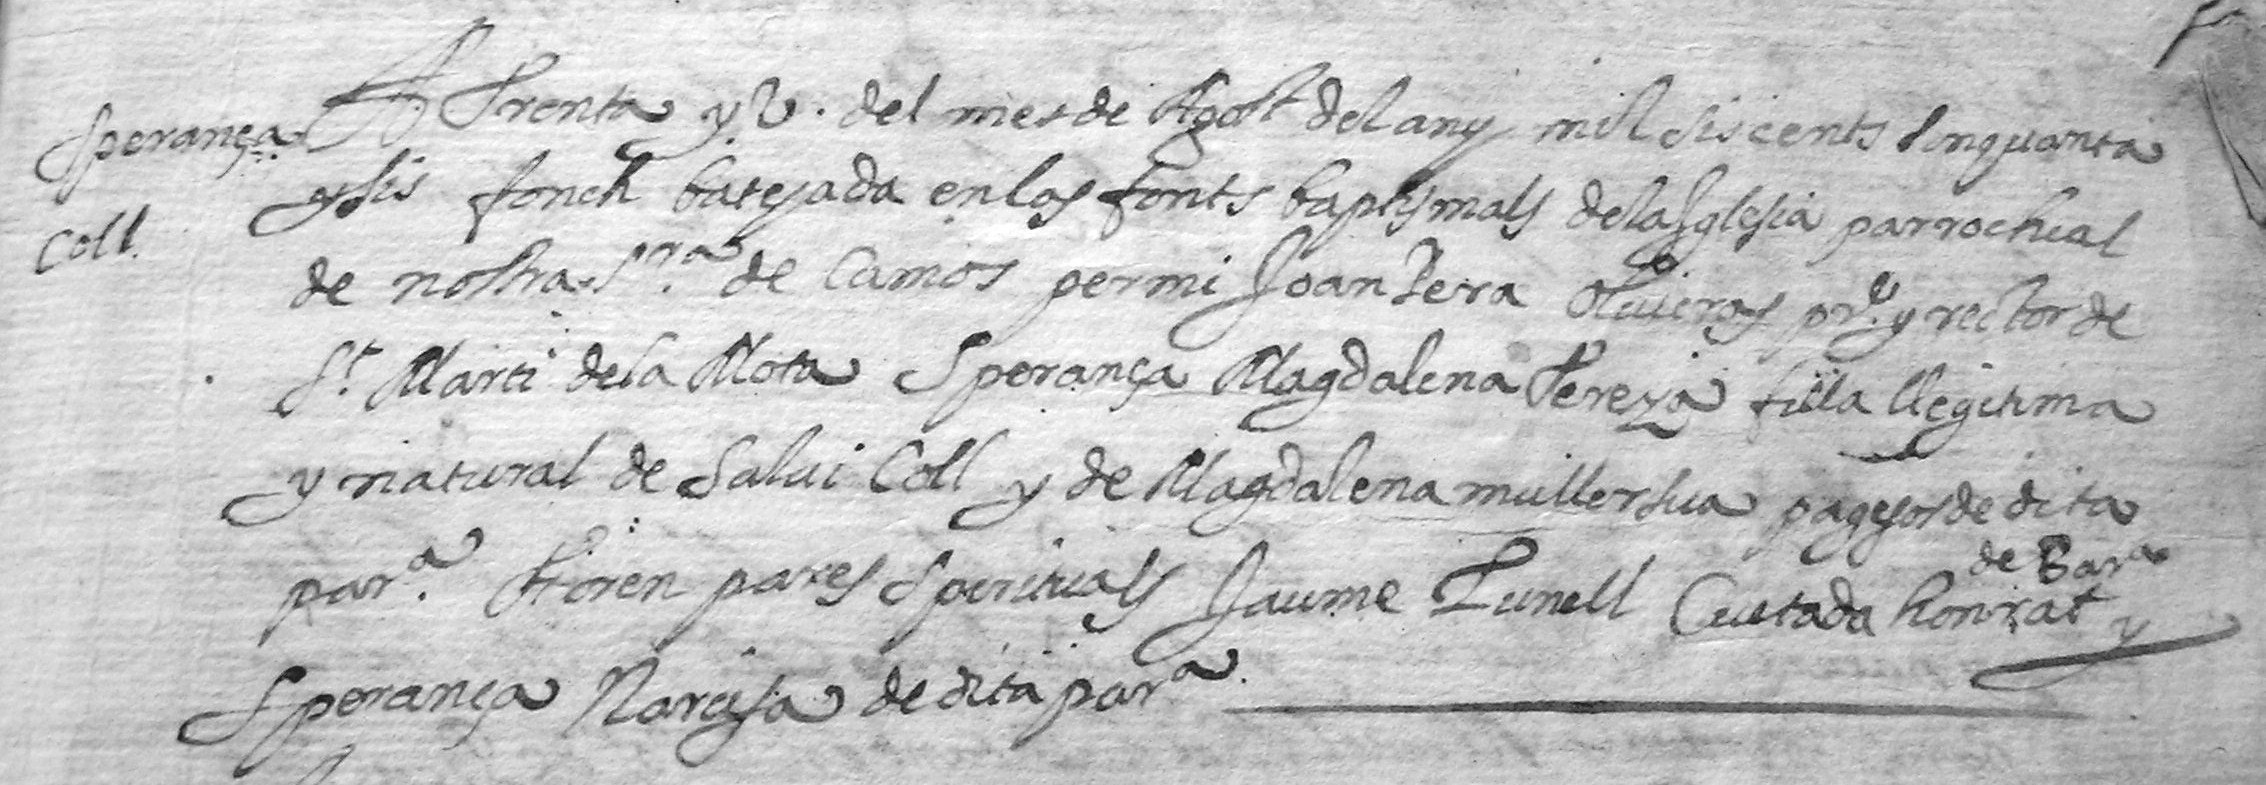 Sperança
Coll.
A Trenta y hu. del mes de Agost del any mil siscents sinquanta
y sis fonch batejada en las fonts baptismals de la Iglesia parrochial
de nostra Sra. de Camos per mi Joan Pera Oliueras pre. y rector de
St. Marti de la Mota Sperança Magdalena Tereza filla llegitima
y natural de Salui Coll y de Magdalena muller sua pagesos de dita
para. Foren pares Speritials Jaume Lunell Ciutada honrat de Bara y
Sperança Narcisa de dita para.